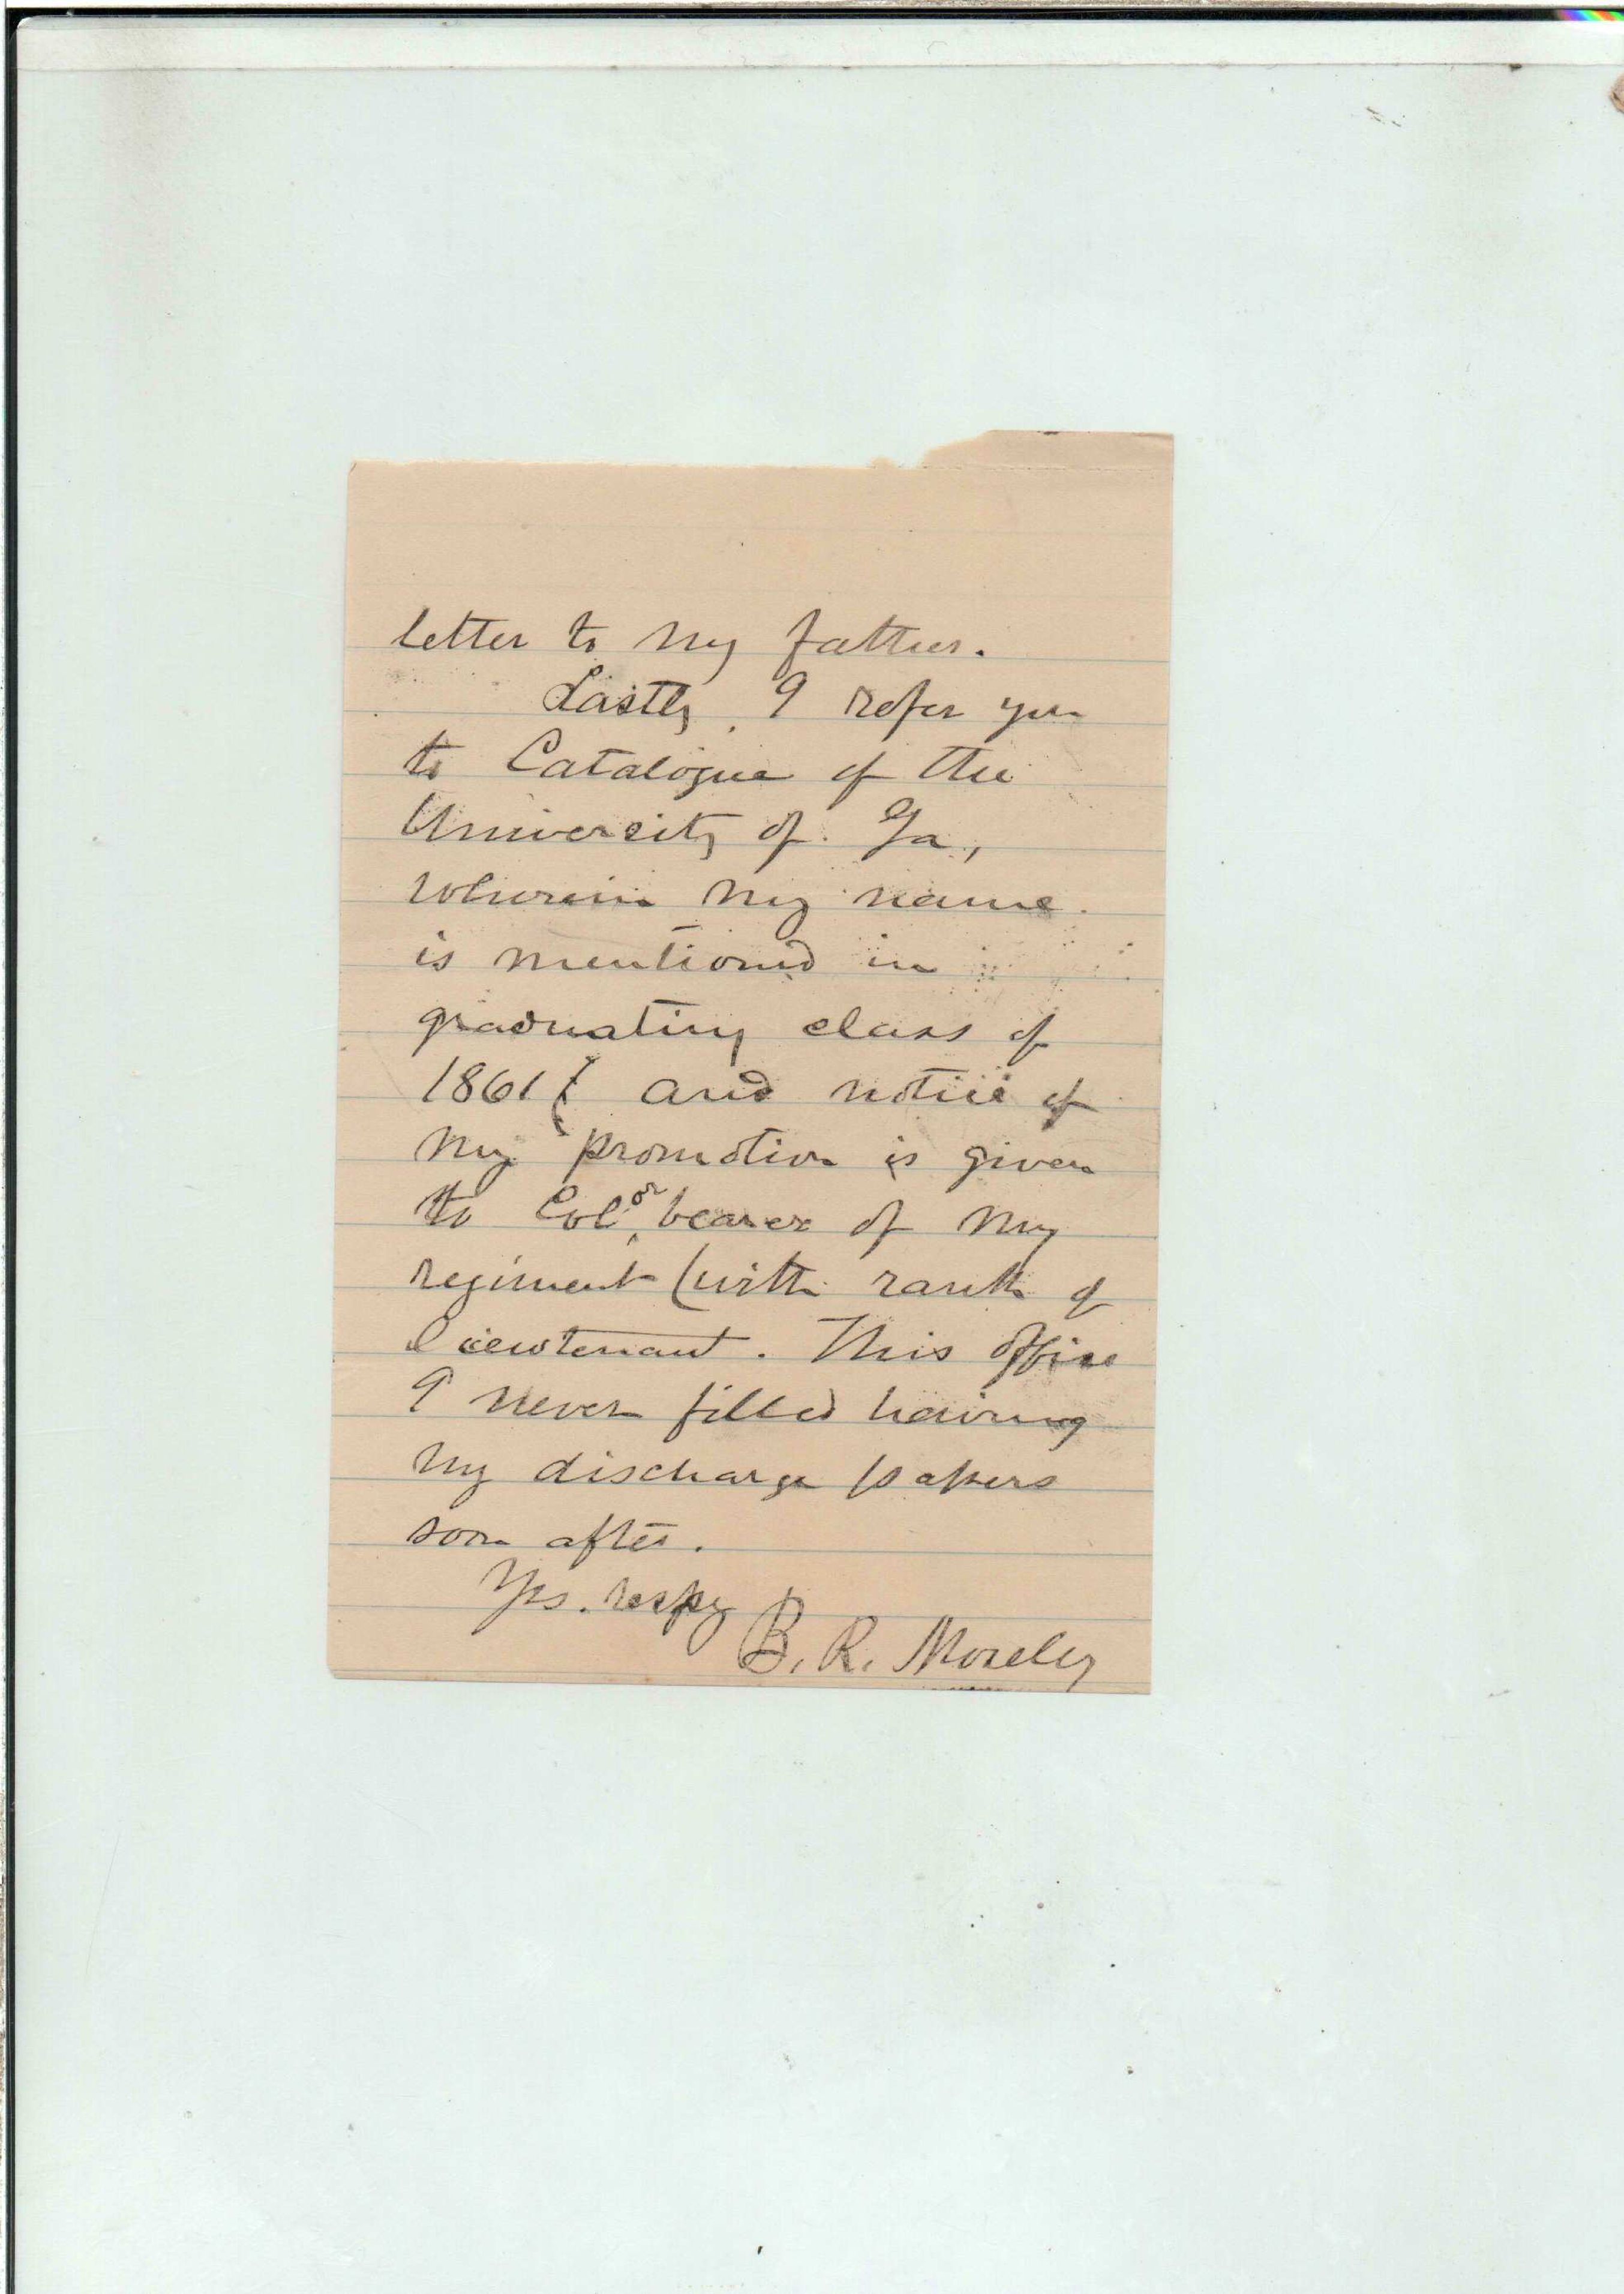 letter to my father.
Lastly, I refer you
to Catalogue of the
University of Ga,
wherein my name
is mentioned in
graduating class of
1861 { and notice of
my promotion is given
to Color bearer of my
regiment (with rank of
lieutenant. This office
I never filled having
my discharge papers
soon after.
Yrs. respy
B. R. Moseley